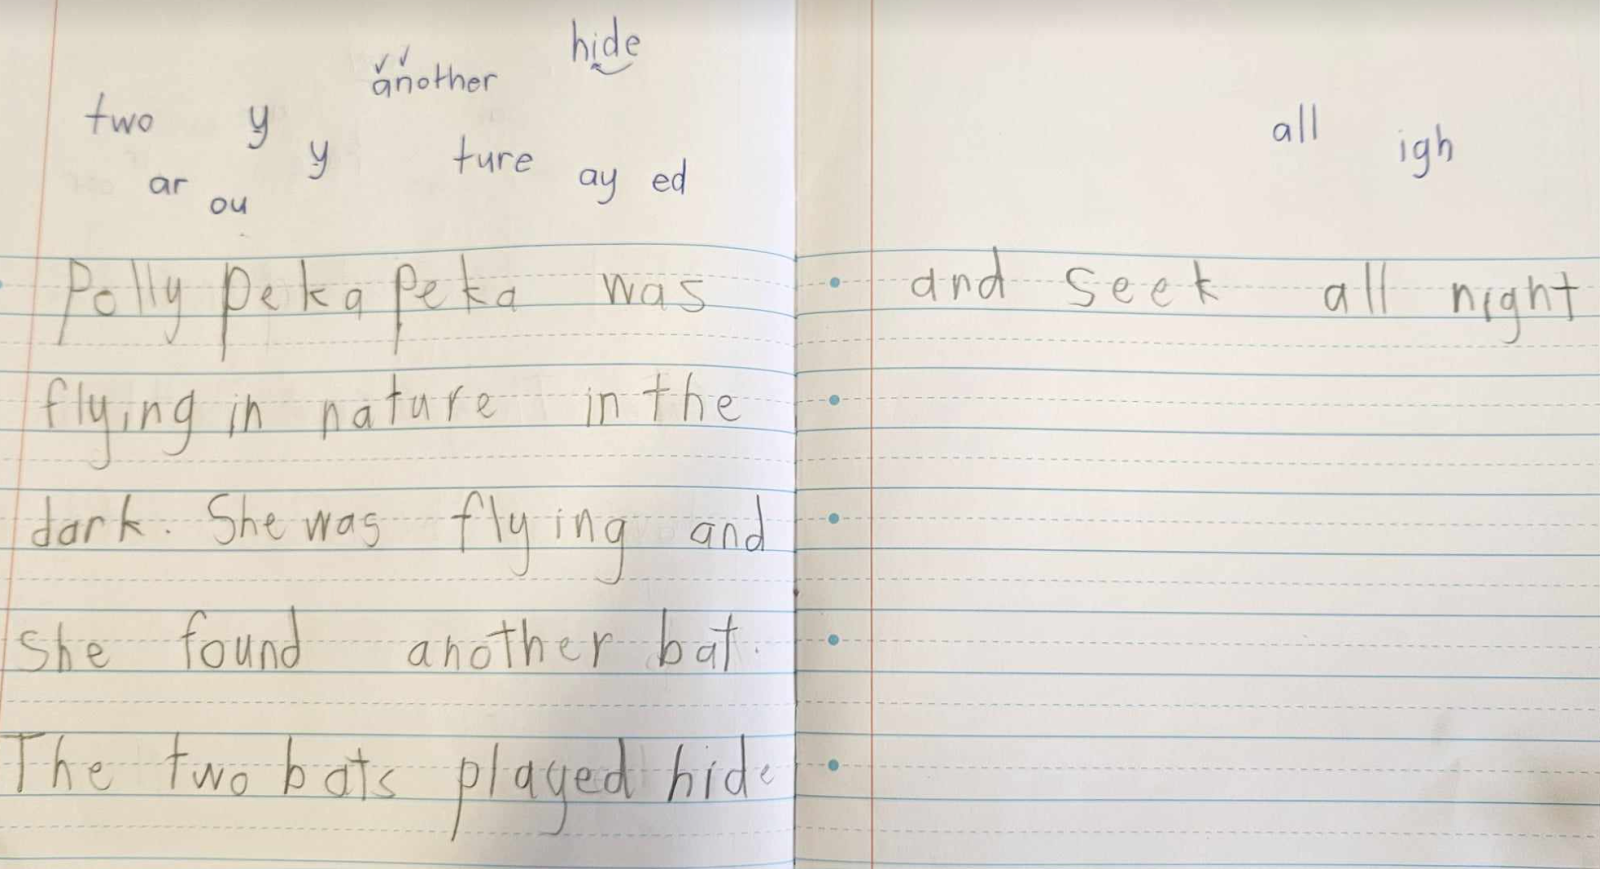 hide
another
two y
y ture
ar ou ay ed
Polly pekapeka was
flying in nature in the
dark. She was flying and
she found another bat.
The two bats played hide
all igh
and seek all night